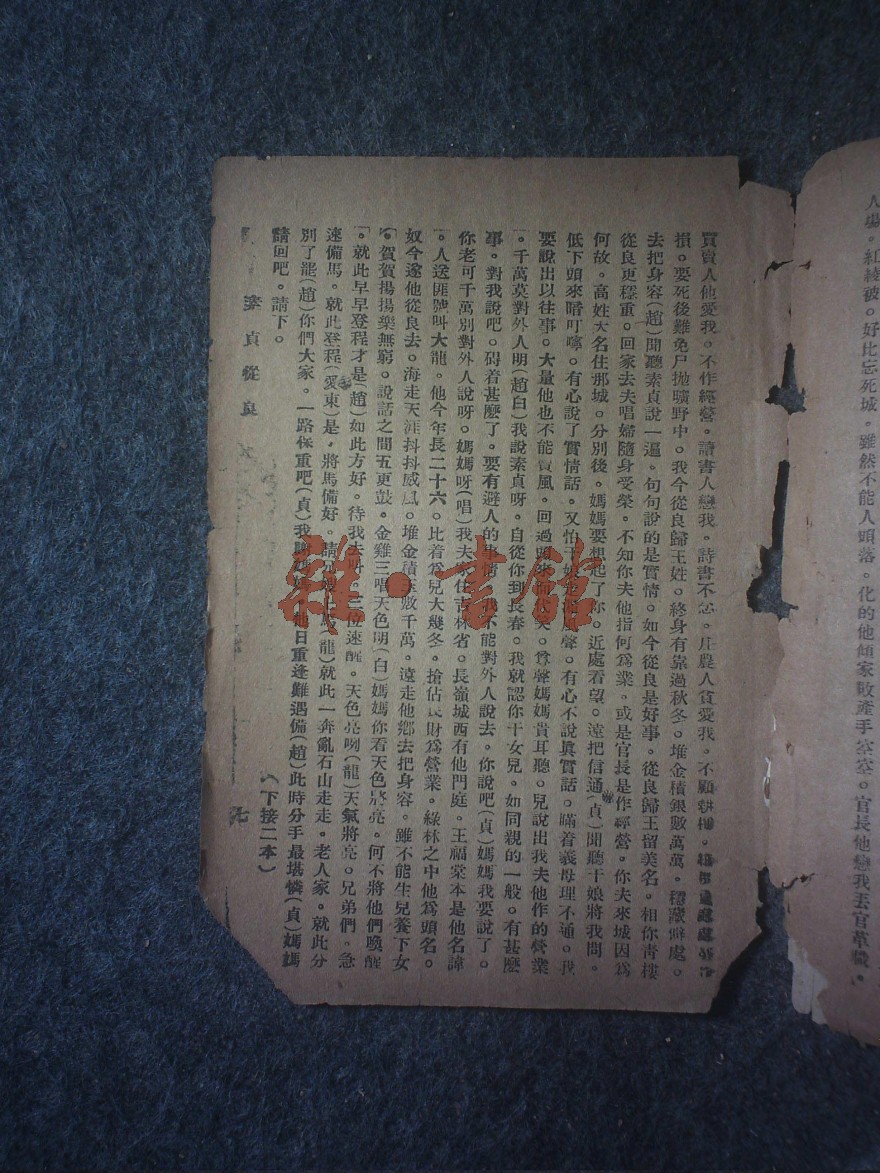 人場。紅綾被。好比忘死城。雖然不能人頭落。化的他傾家敗產手空空。官長他戀我丟官革職。
買賣人他愛我。不作經營。讀書人戀我。詩書不念。庄農人貧愛我。不顧耕種。
損。要死後難免尸拋曠野中。我今從良歸王姓。終身有靠過秋冬。堆金積銀數萬萬。穩藏僻處。
去把身容(趙)聞聽素貞說一遍。句句說的是實情。如今從良是好事。從良歸王留美名。相你靑樓
從良更穩重。回家去夫唱婦隨身受榮。不知你夫他指何爲業。或是官長是作經營。你夫來城因爲
何故。高姓大名住那城。分別後。媽媽要想起了你。近處看望。遠把信通(貞)聞聽干娘將我問。
低下頭來暗叮嚀。有心說了實情話。又怕干娘 聲。有心不說眞實話。瞞着義母理不通。我
要說出以往事。大量他也不能 風。回過頭來 尊聲媽媽貴耳聽。兒說出我夫他作的營業
。千萬莫對外人明(趙白)我說素貞呀。自從你到長春。我就認你干女兒。如同親的一般。有甚麼
事。對我說吧。碍着甚麼了。要有避人的事情。我不能對外人說去。你說吧(貞)媽媽我要說了。
你老可千萬別對外人說呀。媽媽呀(唱)我夫家住吉林省。長嶺城西有他門庭。王福棠本是他名諱
。人送匪號叫大龍。他今年長二十六。比着爲兒大幾冬。搶佔民財爲營業。綠林之中他爲頭名。
奴今遂他從良去。海走天涯抖抖威風。堆金積玉數千萬。遠走他鄉去把身容。雖不能生兒養下女
。賀賀揚揚樂無窮。說話之間五更鼓。金雞三唱天色明(白)媽媽你看天色將亮。何不將他們喚醒
。就此早早登程才是(趙)如此方好。待我去叫。三位速醒。天色亮咧(龍)天氣將亮。兄弟們。急
速備馬。就此登程(愛東)是。將馬備好。請兄嫂上馬(龍)就此一奔亂石山走走。老人家。就此分
別了罷(趙)你們大家。一路保重吧(貞)我謝媽媽。他日重逢難遇備(趙)此時分手最堪憐(貞)媽媽
請回吧。請下。
(下接二本)
素貞從良 七
雜·書館